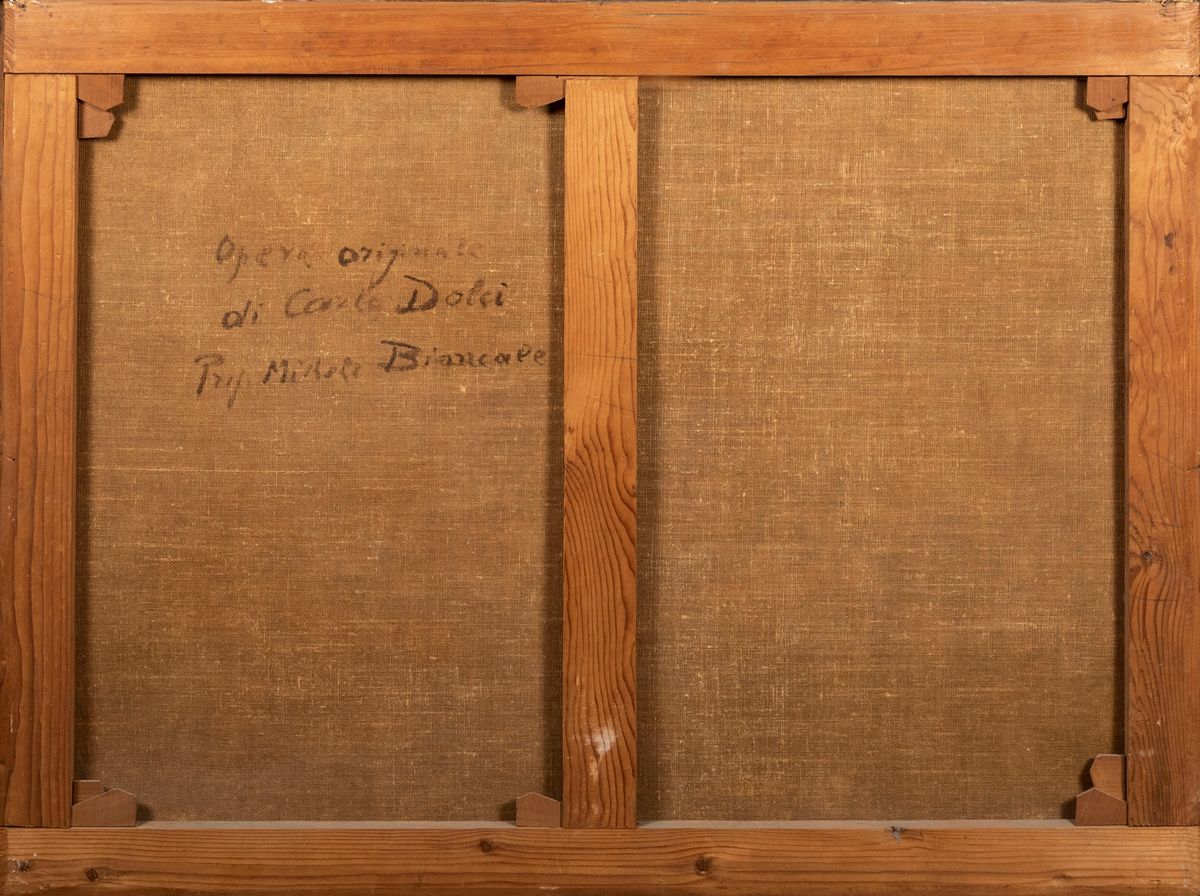 Opera originale
di Carlo Dolci
Prof. Michele Biancale